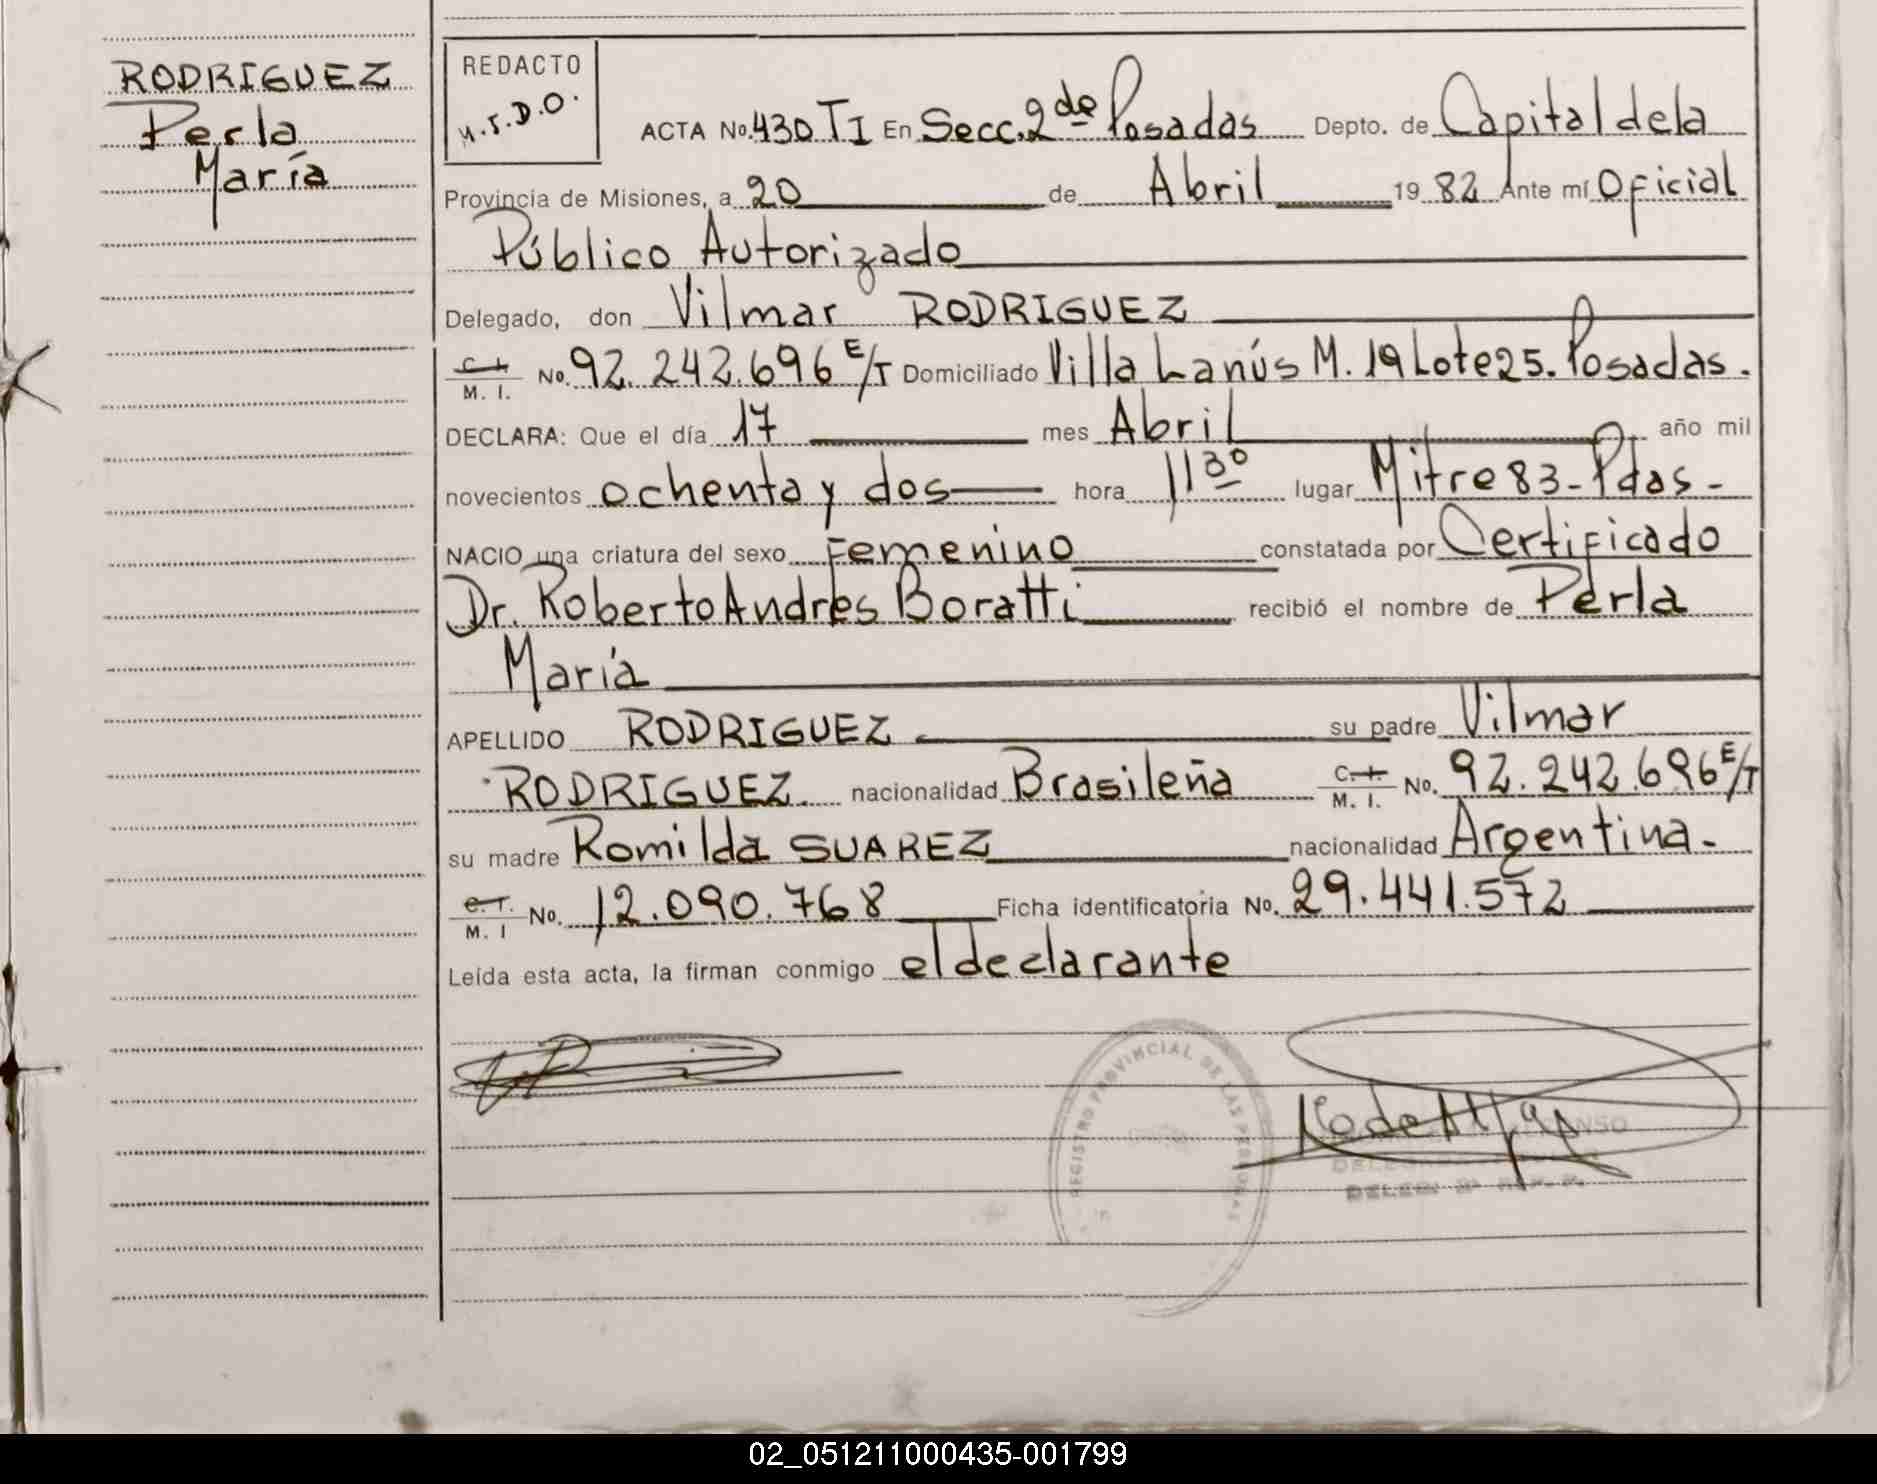 RODRIGUEZ
Perla
María
REDACTO
M.S.D.O.
ACTA No. 430 TI En Secc. 2da Posadas Depto. de Capital de la
Provincia de Misiones, a 20 de Abril 1982 Ante mí Oficial
Público Autorizado
Delegado, don Vilmar RODRIGUEZ
C. I. / M. I. No. 92.242.696 E/T Domiciliado Villa Lanús M. 19 Lote 25. Posadas.
DECLARA: Que el día 17 mes Abril año mil
novecientos ochenta y dos hora 11 30 lugar Mitre 83 - Pdas -
NACIO una criatura del sexo Femenino constatada por Certificado
Dr. Roberto Andrés Boratti recibió el nombre de Perla
María
APELLIDO RODRIGUEZ su padre Vilmar
RODRIGUEZ. nacionalidad Brasileña C. I. / M. I. No. 92.242.696 E/T
su madre Romilda SUAREZ nacionalidad Argentina.-
M. I No. 12.090.768 Ficha identificatoria No. 29.441.572
Leída esta acta, la firman conmigo el declarante
REGISTRO PROVINCIAL DE LAS PERSONAS
02_051211000435-001799